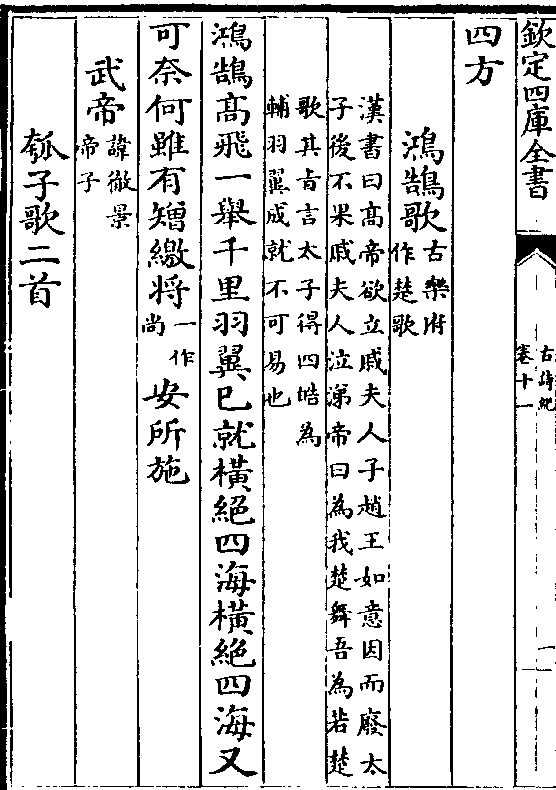 欽定四庫全書
古詩紀
卷十一
一
四方
鴻鵠歌古樂府
作楚歌
漢書曰髙帝欲立戚夫人子趙王如意因而廢太
子後不果戚夫人泣涕帝曰為我楚舞吾為若楚
歌其㫖言太子得四皓為
輔羽翼成就不可易也
鴻鵠髙飛一舉千里羽翼已就橫絶四海橫絶四海又
可奈何雖有矰繳將一作
尚安所施
武帝諱徹景
帝子
瓠子歌二首